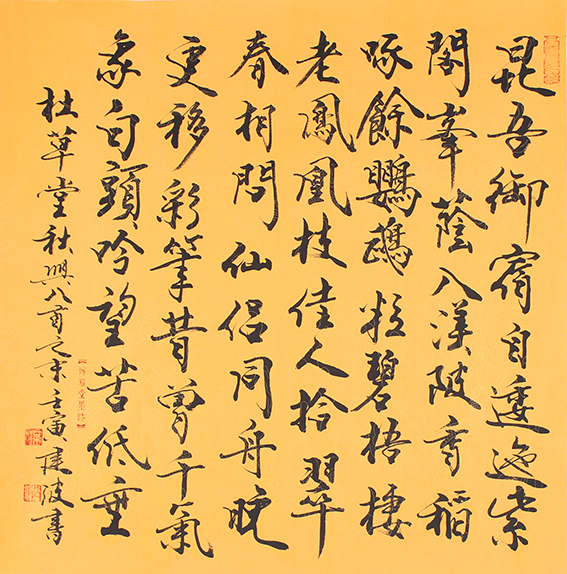 昆吾御宿自逶迤紫
閣峯蔭入渼陂香稻
啄餘鸚鵡粒碧梧棲
老鳳凰枝佳人拾翠
春相問仙侶同舟晚
更移彩筆昔曾干氣
象白頭吟望苦低垂
杜草堂秋興八首之末壬寅波書